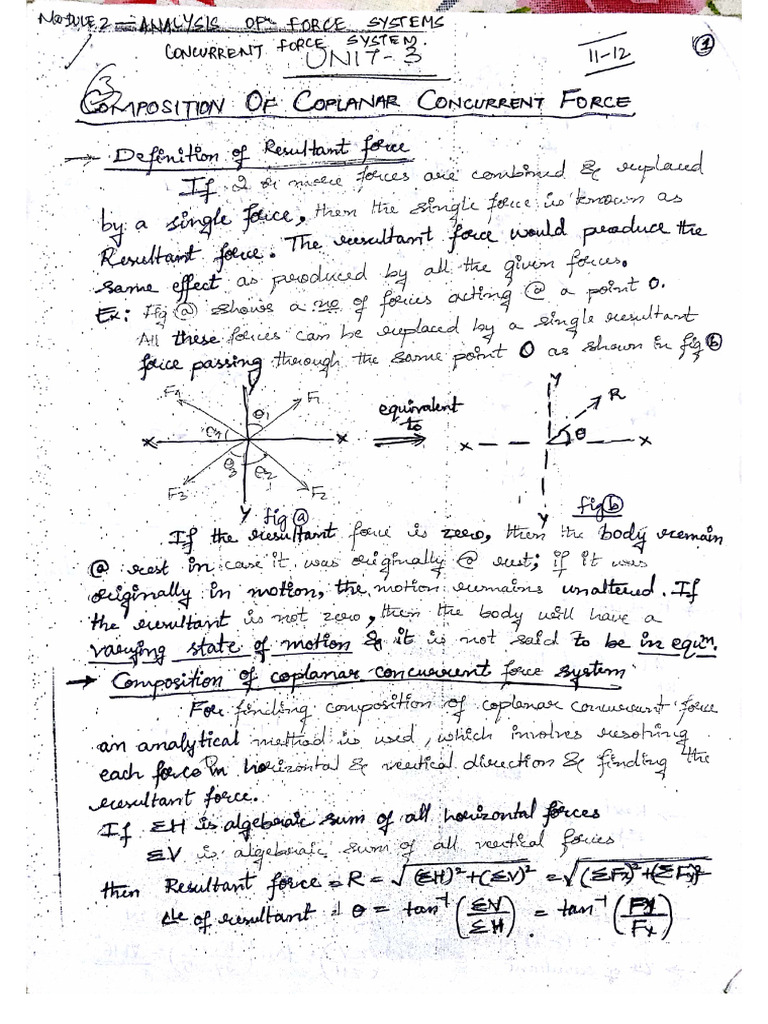 MODULE 2 - ANALYSIS OF FORCE SYSTEMS
CONCURRENT FORCE SYSTEM.
UNIT-3
11-12
1
3
COMPOSITION OF COPLANAR CONCURRENT FORCE
→ Definition of Resultant force
If 2 or more forces are combined & replaced
by a single force, then the single force is known as
Resultant force. The resultant force would produce the
same effect as produced by all the given forces.
Ex: Fig (a) shows a no of forces acting @ a point O.
All these forces can be replaced by a single resultant
force passing through the same point O as shown in fig (b)
F4 Y F1 θ1 θ4 X X θ3 θ2 F3 F2 Y
equivalent
to
Y R θ X X Y
fig (a)
fig (b)
If the resultant force is zero, then the body remain
@ rest in case it was originally @ rest; if it was
originally in motion, the motion remains unaltered. If
the resultant is not zero, then the body will have a
varying state of motion & it is not said to be in equm.
→ Composition of coplanar concurrent force system
For finding composition of coplanar concurrent force
an analytical method is used, which involves resolving
each force in horizontal & vertical direction & finding the
resultant force.
If ΣH is algebraic sum of all horizontal forces
ΣV is algebraic sum of all vertical forces
then Resultant force = R = √(ΣH)² + (ΣV)² = √(ΣFx)² + (ΣFy)²
∠le of resultant θ = tan⁻¹(ΣV/ΣH) = tan⁻¹(Fy/Fx).